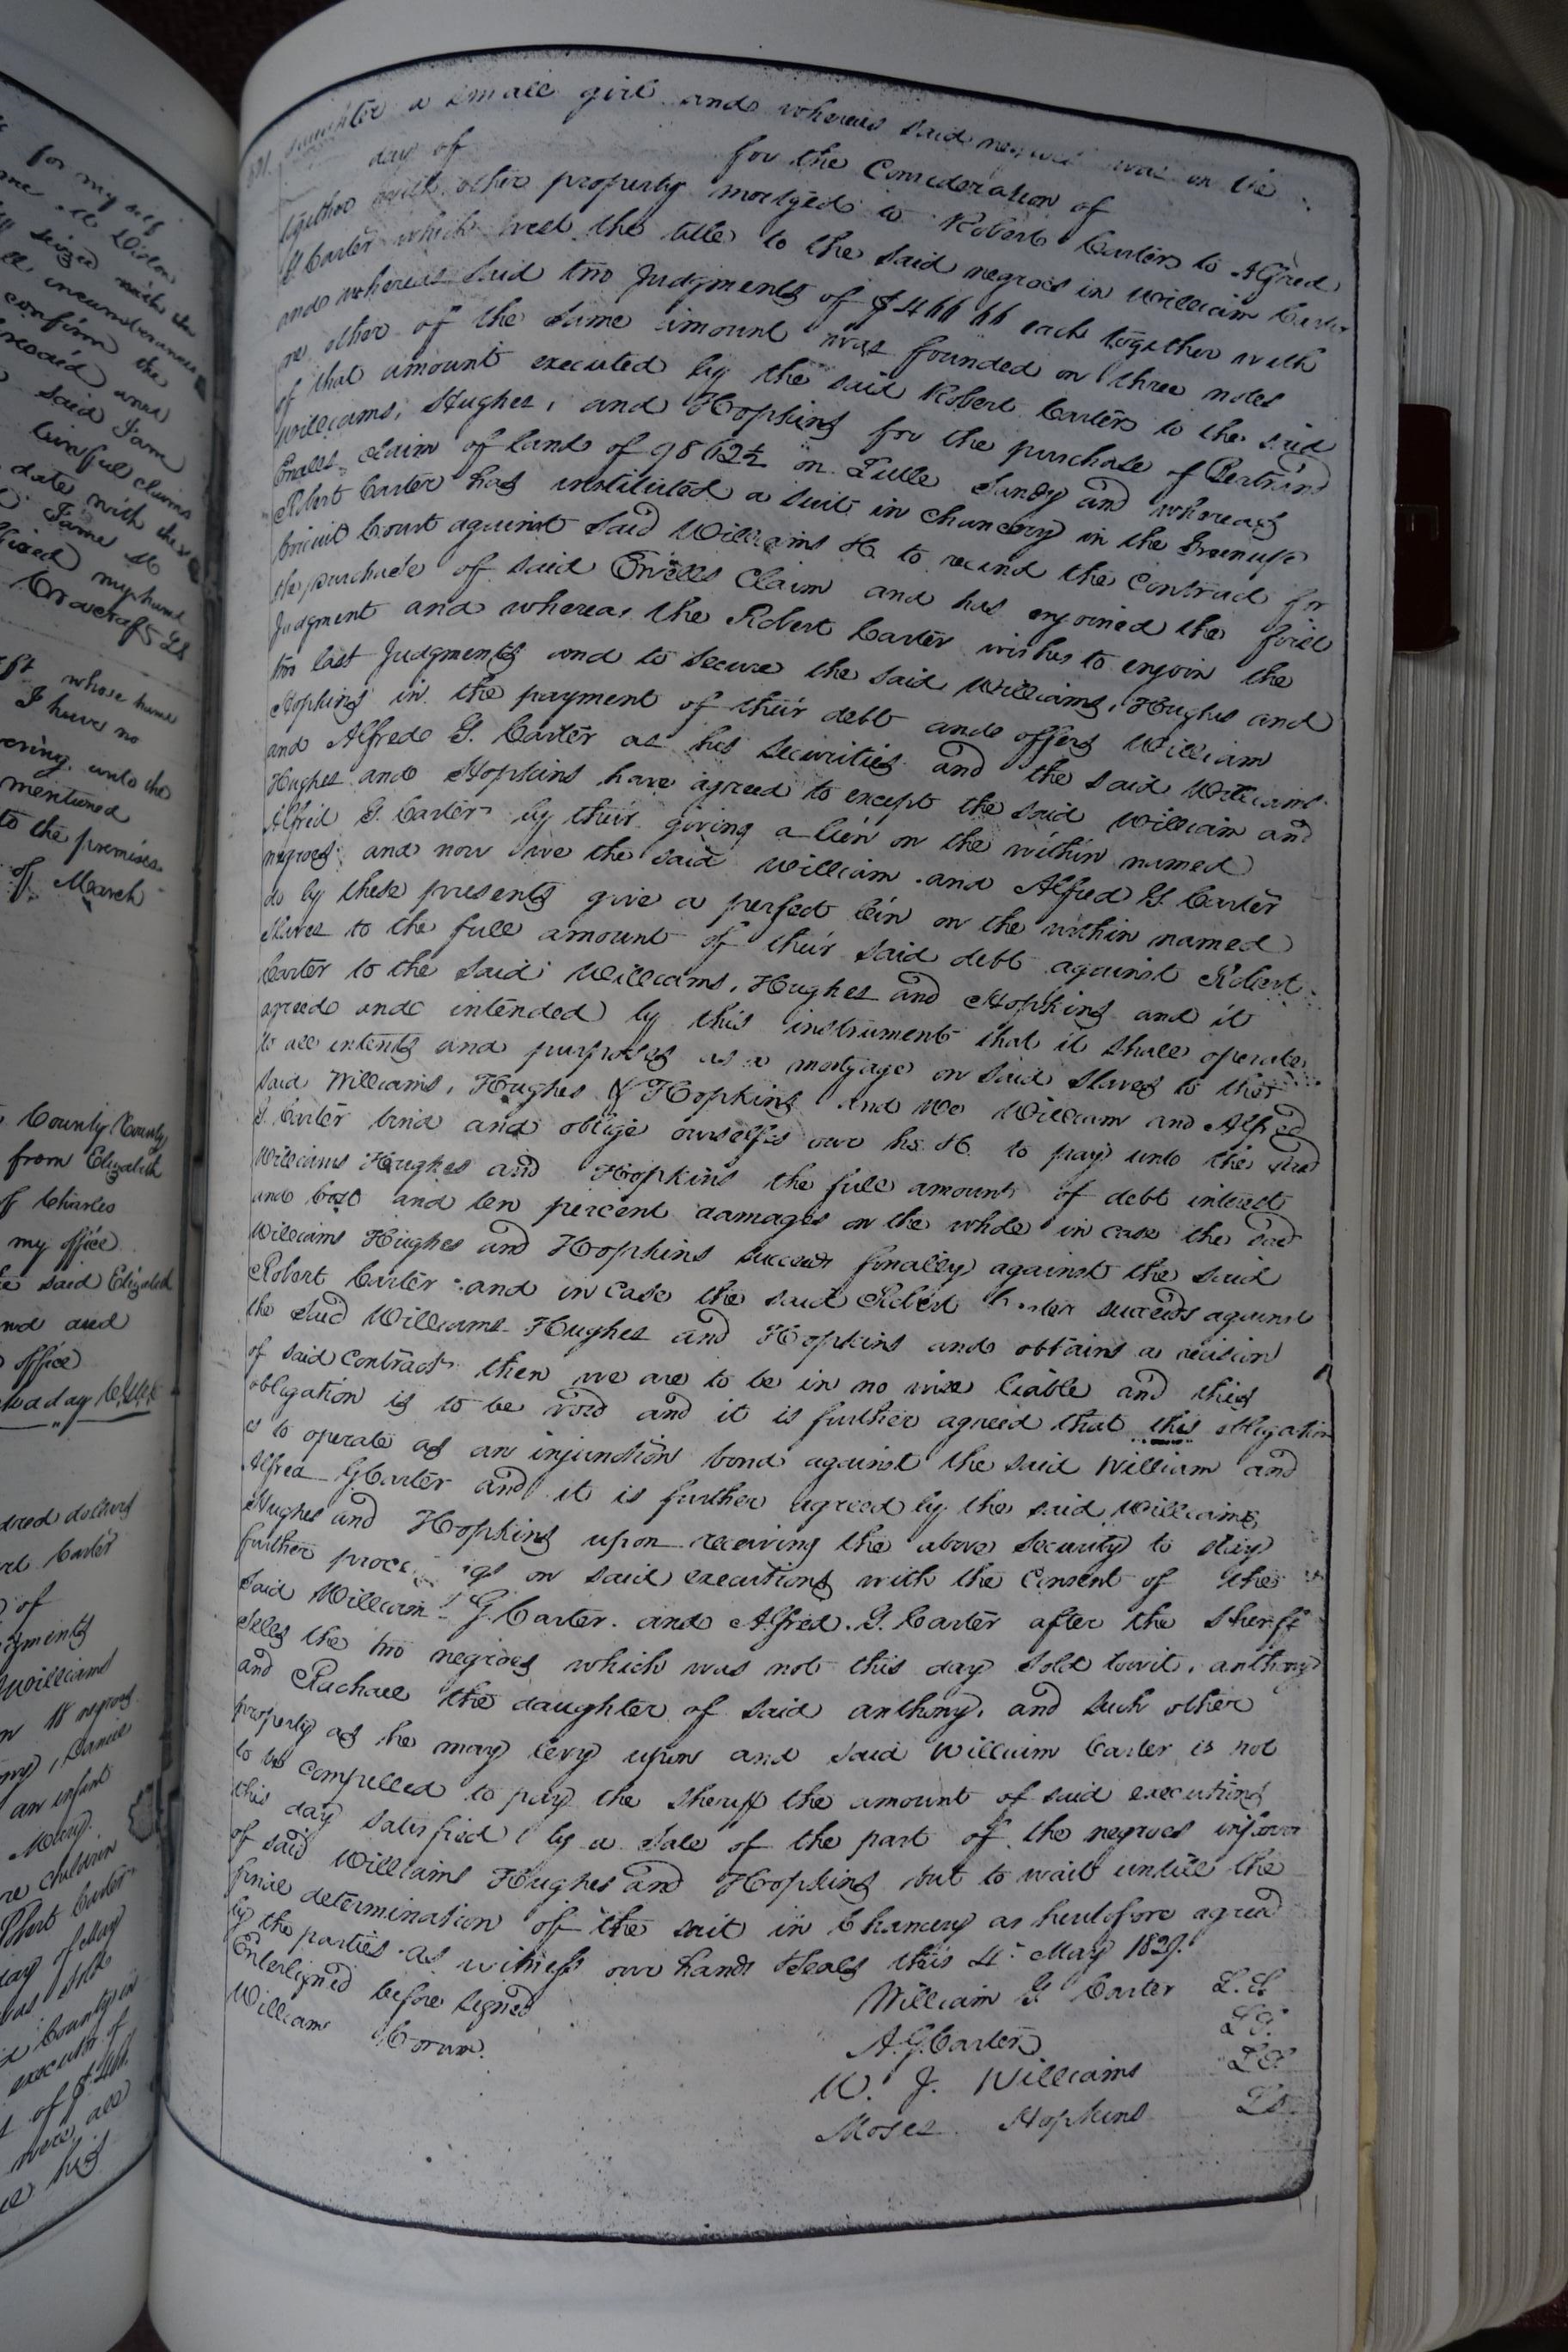 for my self
daughter a small girl and whereas said negroes was on the
day of for the Consideration of
together with other property mortged to Robert Carters to Alfred
G Carter which vest the title to the said negroes in William Carter
and whereas said two Judgments of $466 66 each together with
one other of the same amount was founded on three notes
of that amount executed by the said Robert Carters to the said
Williams, Hughes, and Hopkins for the purchase of Bertrand
Ewells claim of land of 9862½ on Little Sandy and whereas
Robert Carter has instituted a suit in chancery in the Greenup
Circuit Court against said Williams H to recind the Contract for
the purchase of said Ewells Claim and has enjoined the first
Judgment and whereas the Robert Carter wishes to enjoin the
two last Judgments and to secure the said Williams, Hughes and
Hopkins in the payment of their debt and offers William
and Alfred G. Carter as his securities and the said Williams
Hughes and Hopkins have agreed to except the said William and
Alfred G. Carter by their giving a lien on the within named
negroes and now we the said William and Alfred G. Carter
do by these presents give a perfect lein on the within named
slaves to the full amount of their said debt against Robert
Carter to the said Williams, Hughes and Hopkins and it
agreed and intended by this instrument that it shall operate
to all intents and purposes as a mortgage on said slaves to the
said Williams, Hughes & Hopkins and We William and Alfred
G. Carter bind and oblige ourselfs our hs. H. to pay unto the said
Williams Hughes and Hopkins the full amount of debt interest
and Cost and ten percent damages on the whole in case the said
Williams Hughes and Hopkins succeed finally against the said
Robert Carter and in case the said Robert Carter succeeds against
the said Williams Hughes and Hopkins and obtains a recision
of said contract then we are to be in no wise liable and this
obligation is to be void and it is further agreed that this obligation
is to operate as an injunction bond against the said William and
Alfred G Carter and it is further agreed by the said Williams
Hughes and Hopkins upon receiving the above security to stay
further proce ings on said executions with the Consent of the
said William G. Carter. and Alfred. G. Carter after the Sheriff
sells the two negroes which was not this day sold towit, anthony
and Rachael the daughter of said anthony, and such other
property as he may levy upon and said William Carter is not
to be compelled to pay the Sheriff the amount of said executions
this day satisfied by a sale of the part of the negroes infavor
of said Williams Hughes and Hopkins but to wait untill the
final determination of the suit in Chancery as heretofore agreed
by the parties as witness our hands & seals this 4th May 1829.
Enterligned before signed
William G Carter L.S.
William Corum.
A. G. Carter L S.
W. J. Williams L S.
Moses Hopkins L S.
confirm the
said Jam
lawful claims
date with these
my hand
whose name
I have no
vering unto the
mentioned
to the premises
of March
County County
from Elizabeth
of Charles
my office
said Elizabeth
office
dred dollars
Carter
of
Williams
18 negroes
an infant
Mary.
children
Robert Carter
day of May
was sold
County
executor of
were all
his